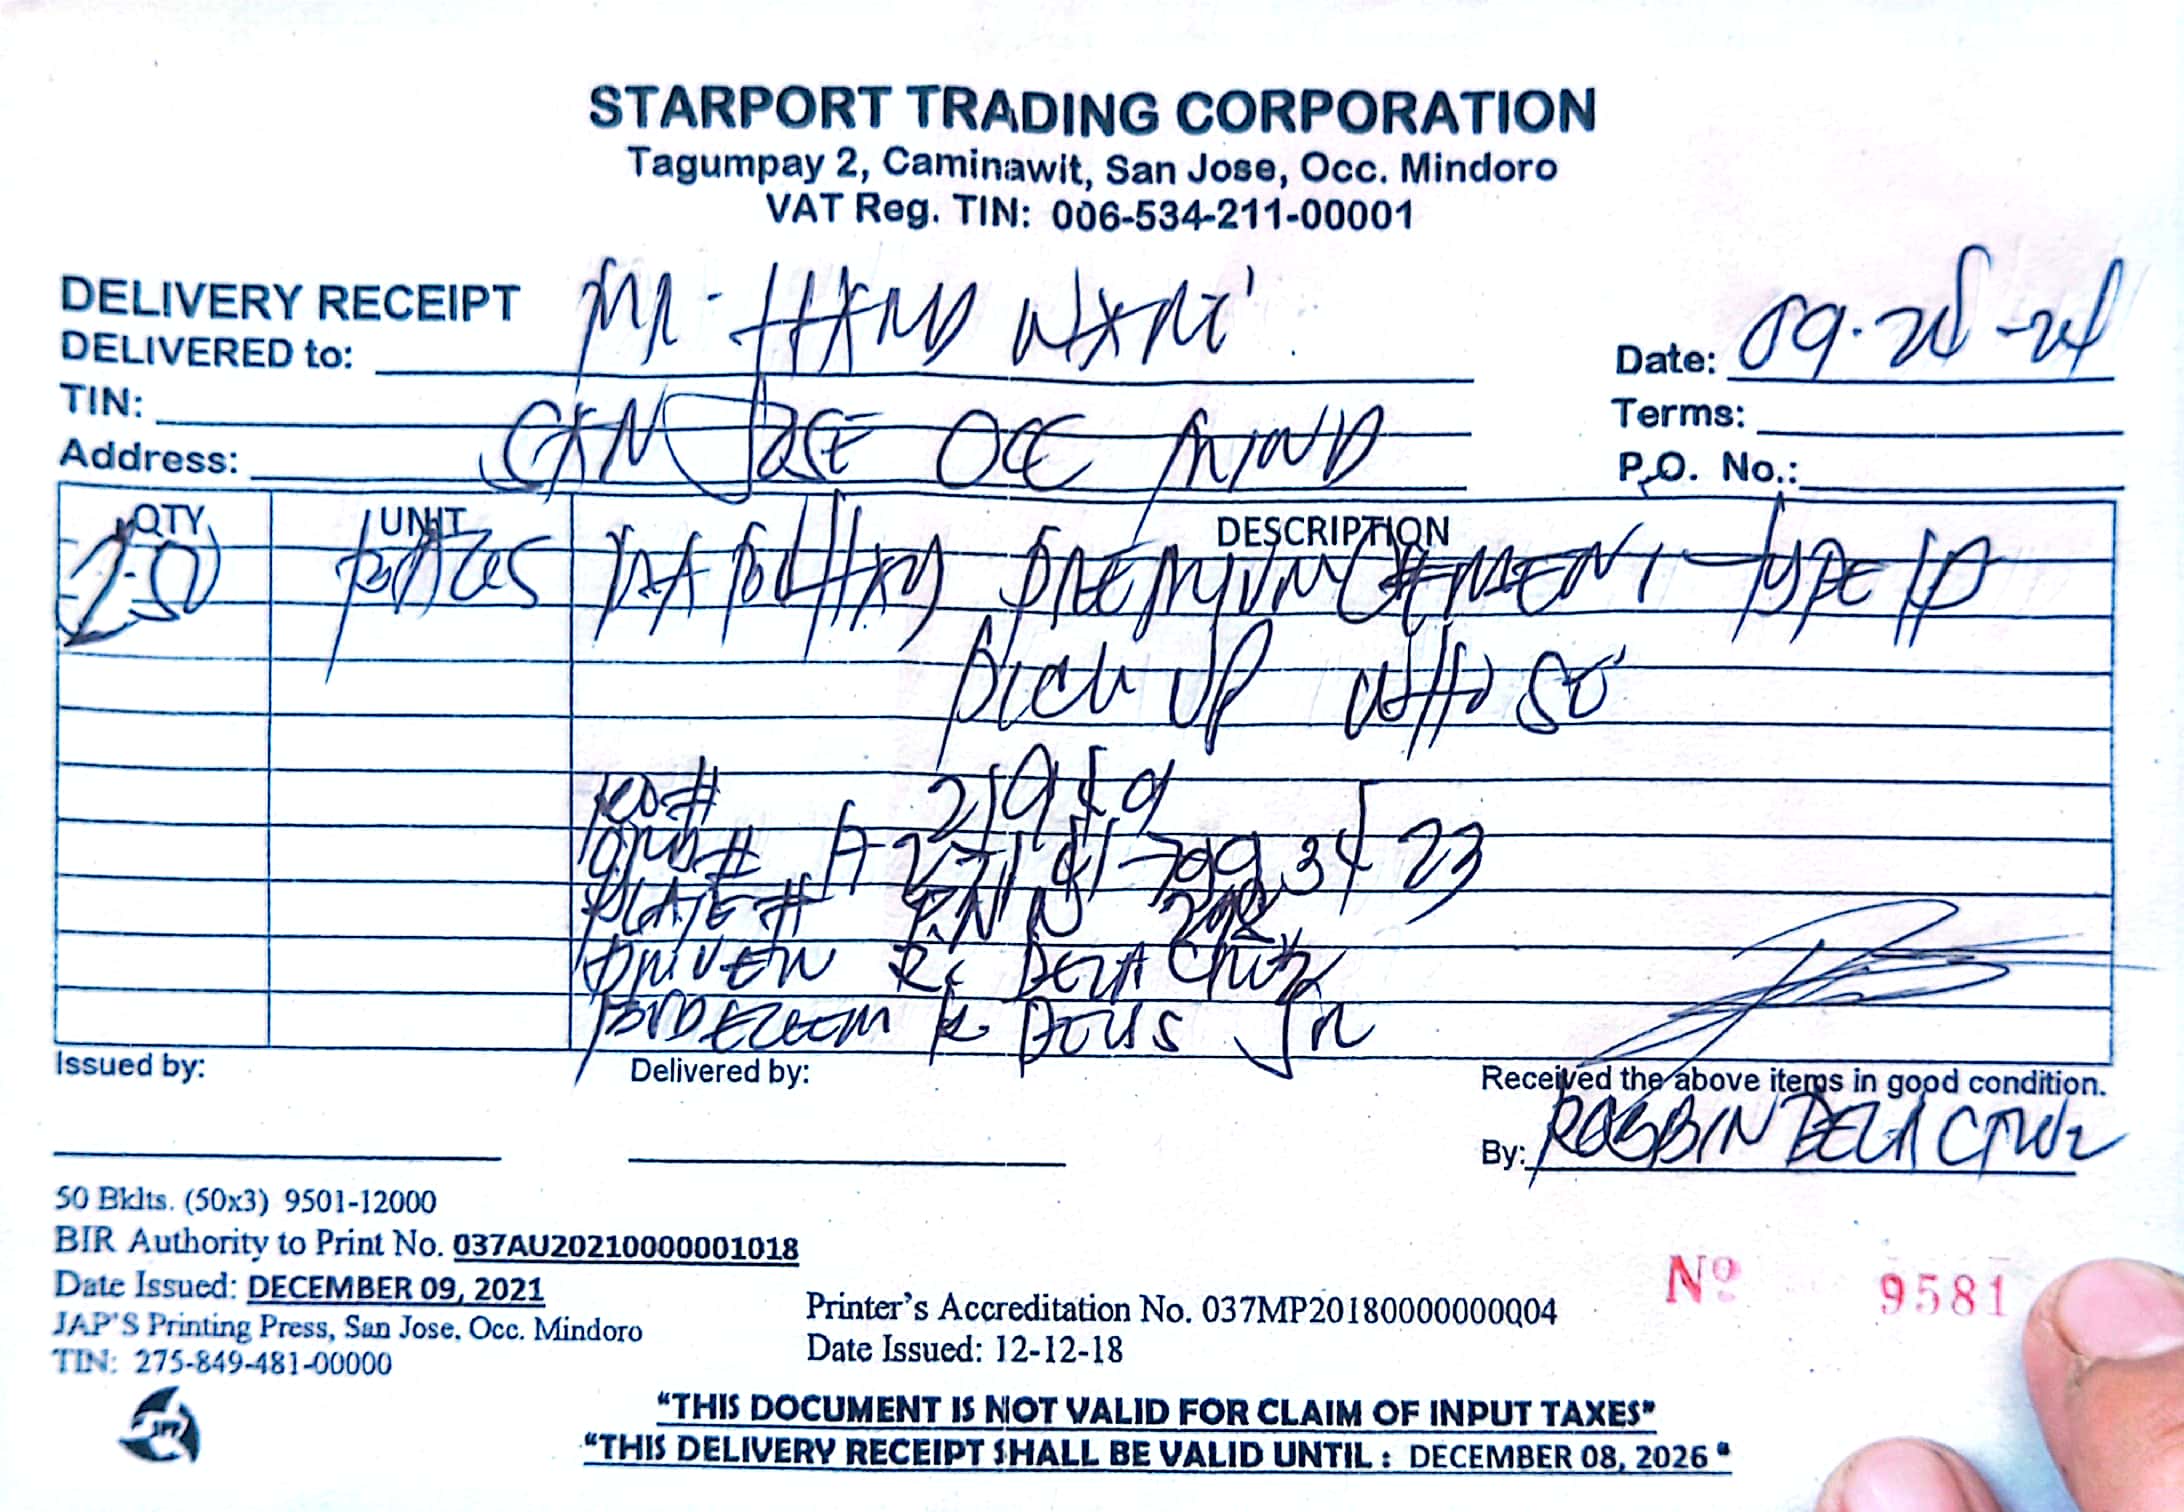 STARPORT TRADING CORPORATION
Tagumpay 2, Caminawit, San Jose, Occ. Mindoro
VAT Reg. TIN: 006-534-211-00001
DELIVERY RECEIPT
DELIVERED to: MR.
Date: 09-28-24
TIN:
Terms:
Address: SAN JOSE OCC MIND
P.O. No.:
QTY UNIT DESCRIPTION
250 PREMIUM CEMENT TYPE 1P
PICK UP
21959
PLATE # 
DRIVER R. DELA CRUZ
Jr
Issued by:
Delivered by:
Received the above items in good condition.
By: ROSBIN DELA CRUZ
50 Bklts. (50x3) 9501-12000
BIR Authority to Print No. 037AU20210000001018
Date Issued: DECEMBER 09, 2021
JAP'S Printing Press, San Jose, Occ. Mindoro
TIN: 275-849-481-00000
Printer's Accreditation No. 037MP20180000000004
Date Issued: 12-12-18
Nº 9581
JPP
"THIS DOCUMENT IS NOT VALID FOR CLAIM OF INPUT TAXES"
"THIS DELIVERY RECEIPT SHALL BE VALID UNTIL : DECEMBER 08, 2026"